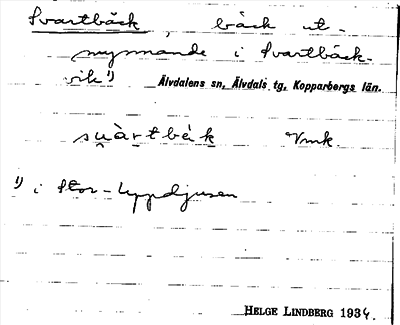 Svartbäck, bäck ut-
mynnande i Svartbäck-
vik¹) Älvdalens sn, Älvdals tg, Kopparbergs län.
su̯àrtbæ̀k Vmk.
¹) i Stor-Uppdjusen
HELGE LINDBERG 1934.